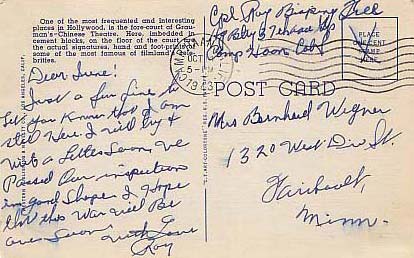 One of the most frequented and interesting
places in Hollywood, is the fore-court of Grau-
man's Chinese Theatre. Here, imbedded in
cement blocks, on the floor of the court, are
the actual signatures, hand and foot-prints of
some of the most famous of filmland cele-
brities.
Dear Irene!
Just a few Line to
Let you Know that I am
still Here. I will try &
write a Letter Soon, we
Passed Our inspection
in good Shape. I Hope
that this War will Be
over Soon.
with Love
Roy
Cpl Roy
Camp Haan Calif
PLACE
ONE CENT
STAMP
HERE
OCT
POST CARD
Mrs Bernhard Wegner
1320 West Div St.
Faribault,
Minn.